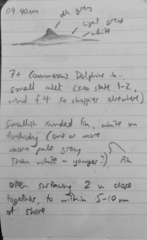 09.40am
dk grey
light grey
white
7+ Commersons Dolphins in
small inlet (sea state 1-2,
wind f4 so choppier elsewhere)
Smallish rounded fin, white on
(one or more
more pale grey
than white - younger?)
Open surfacing 2 v. close
together, to within 5-10m
of shore